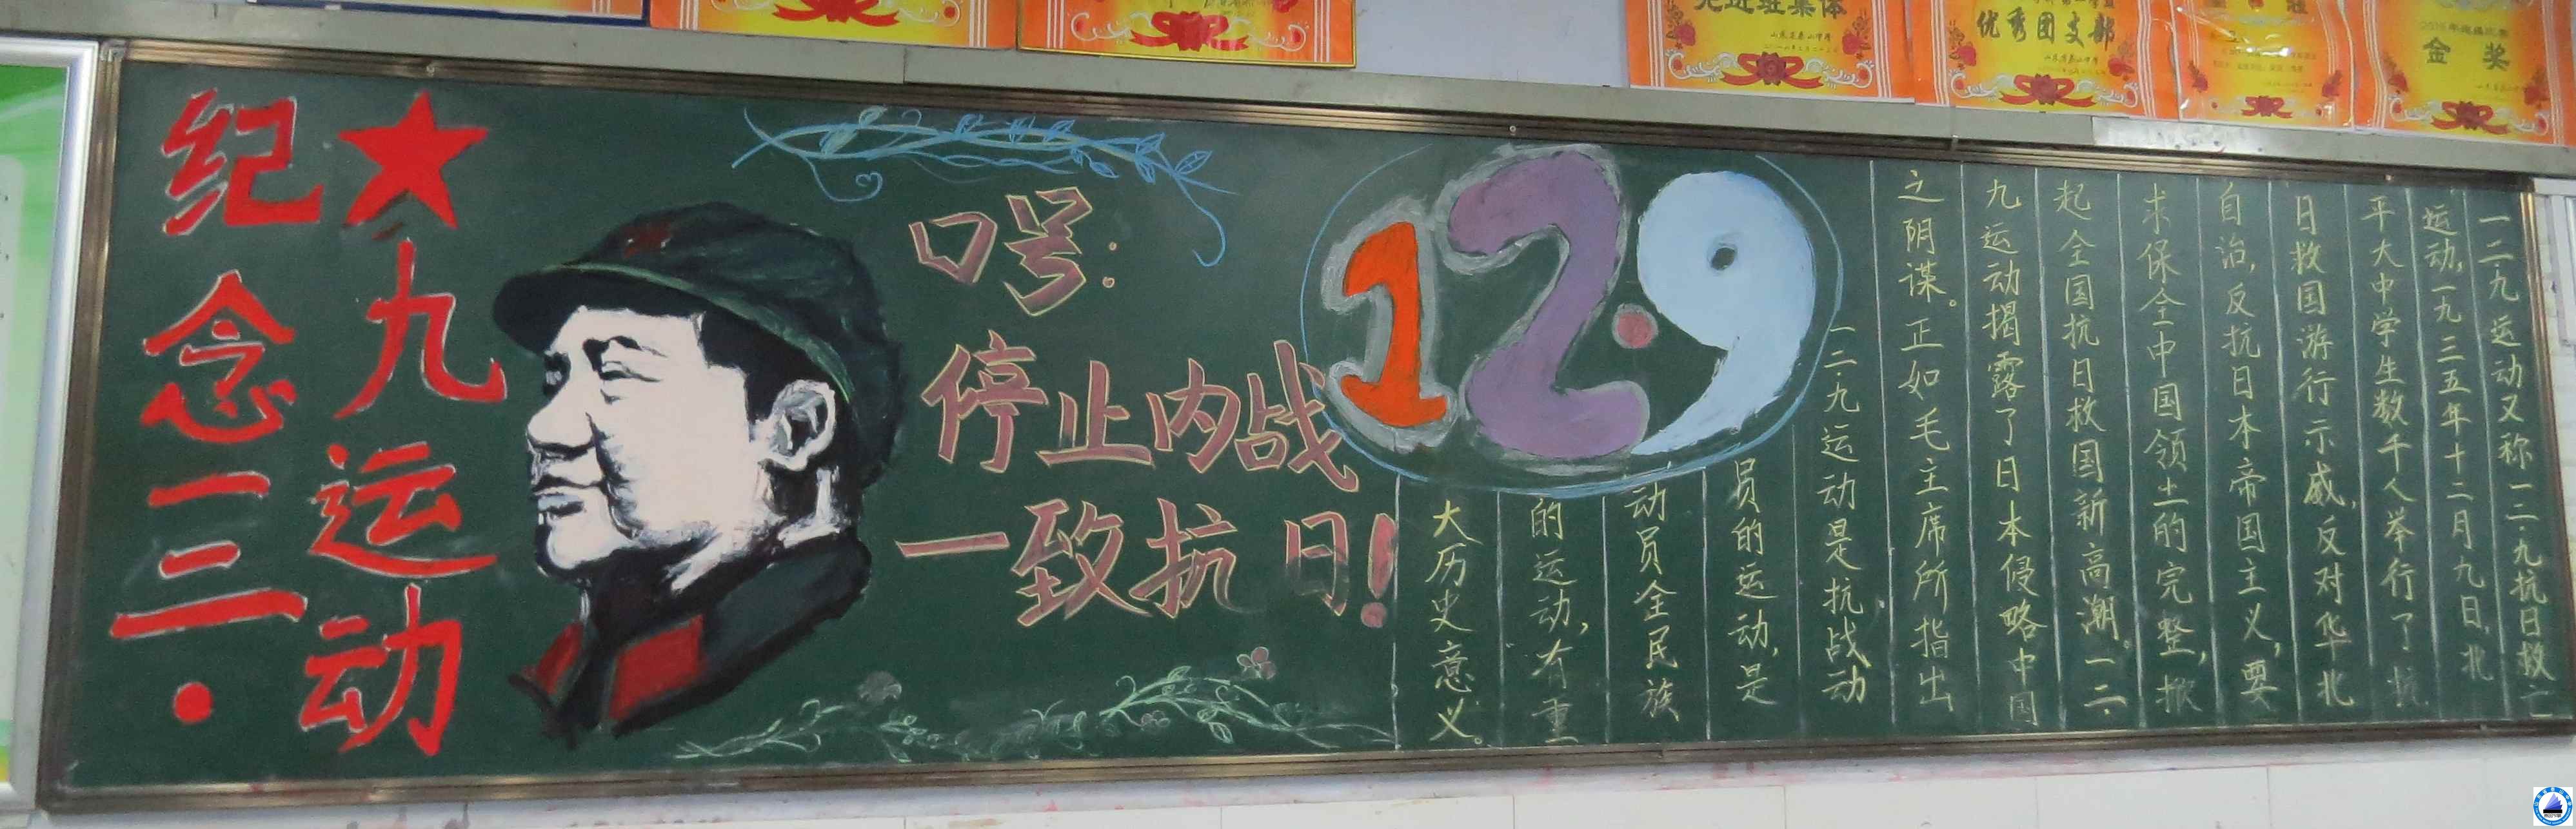 先进班集体
优秀团支部
金奖
纪念一二·
九运动
口号:
停止内战
一致抗日!
12·9
一二九运动又称一二·九抗日救亡
运动,一九三五年十二月九日,北
平大中学生数千人举行了抗
日救国游行示威,反对华北
自治,反抗日本帝国主义,要
求保全中国领土的完整,掀
起全国抗日救国新高潮。一二·
九运动揭露了日本侵略中国
之阴谋。正如毛主席所指出
一二·九运动是抗战动
员的运动,是
动员全民族
的运动,有重
大历史意义。